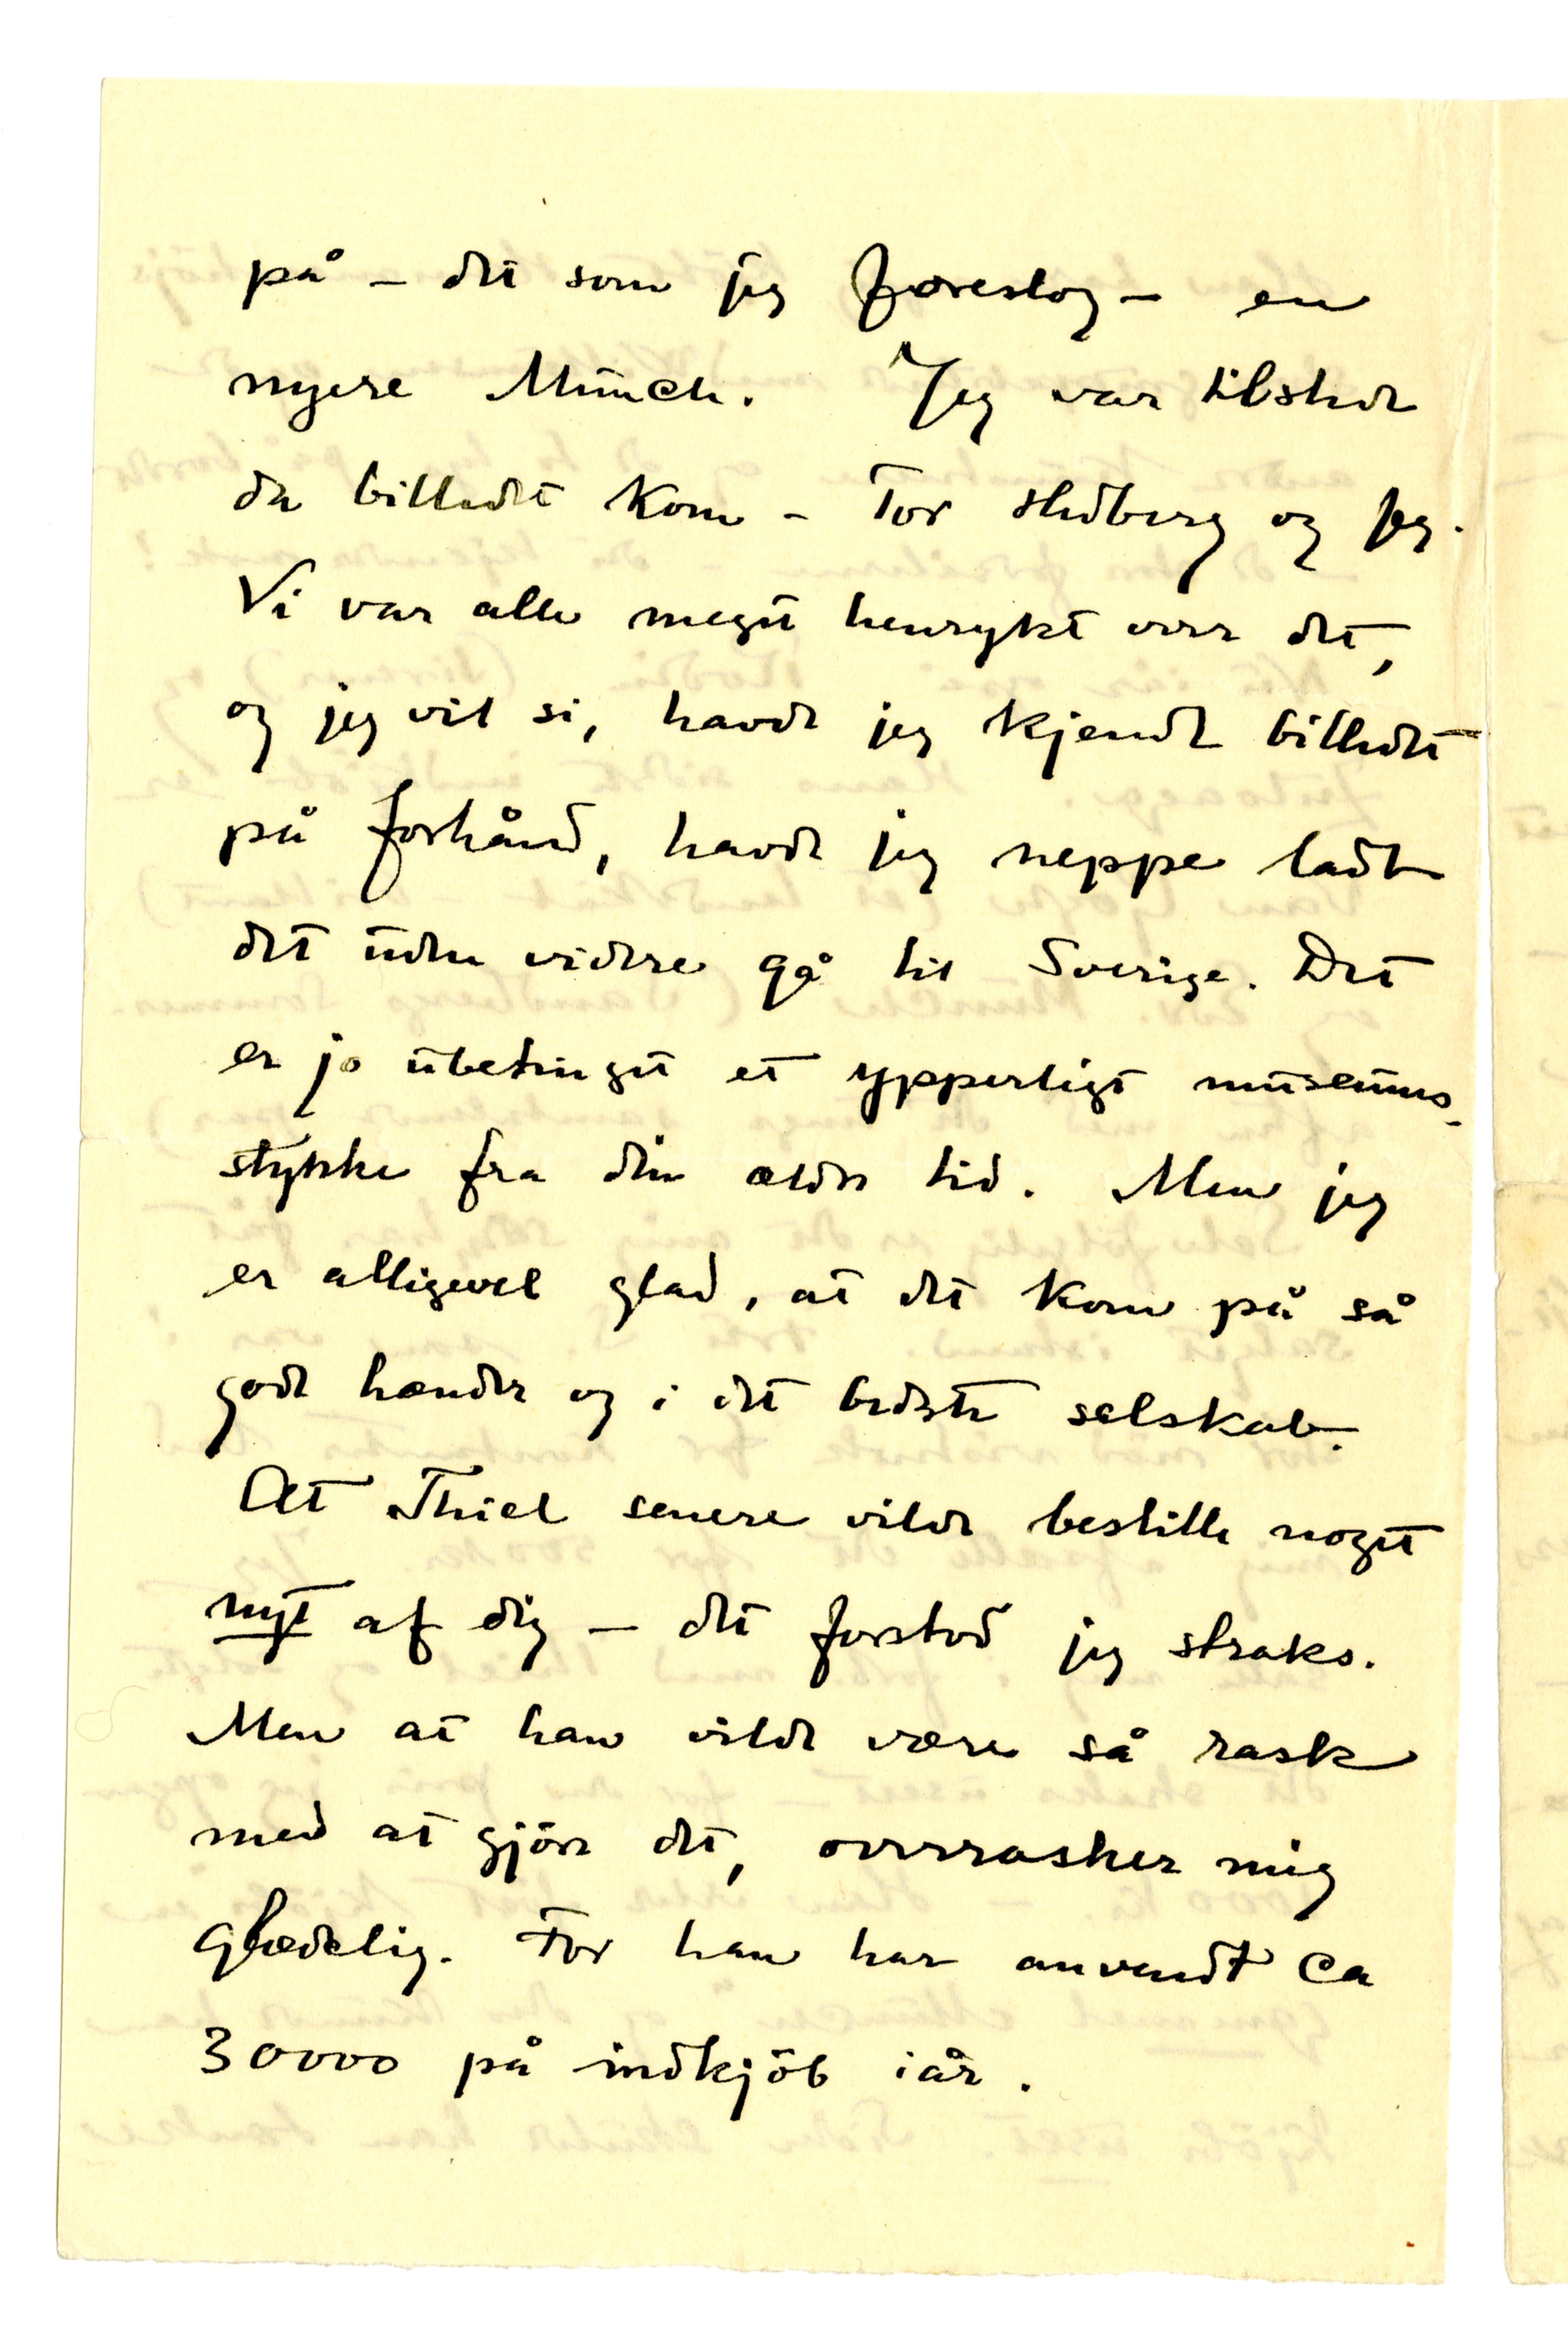 på – det som jeg foreslog – en
nyere Münch. Jeg var tilstede
da billedet kom – Tor Hedberg og jeg.
Vi var alle meget henrykt over det,
og jeg vil si, havde jeg kjendt billedet
på forhånd, havde jeg neppe ladt
det uden videre gå til Sverige. Det
er jo ubetinget et ypperligt museums-
stykke fra din ældre tid. Men jeg
er alligevel glad, at det kom på så
gode hænder og i det bedste selskab.
At Thiel senere vilde bestille noget
nyt af dig – det forstod jeg straks.
Men at han vilde være så rask
med at gjöre det, overrasker mig
glædelig. For han har anvendt ca
30000 på indkjöb iår.